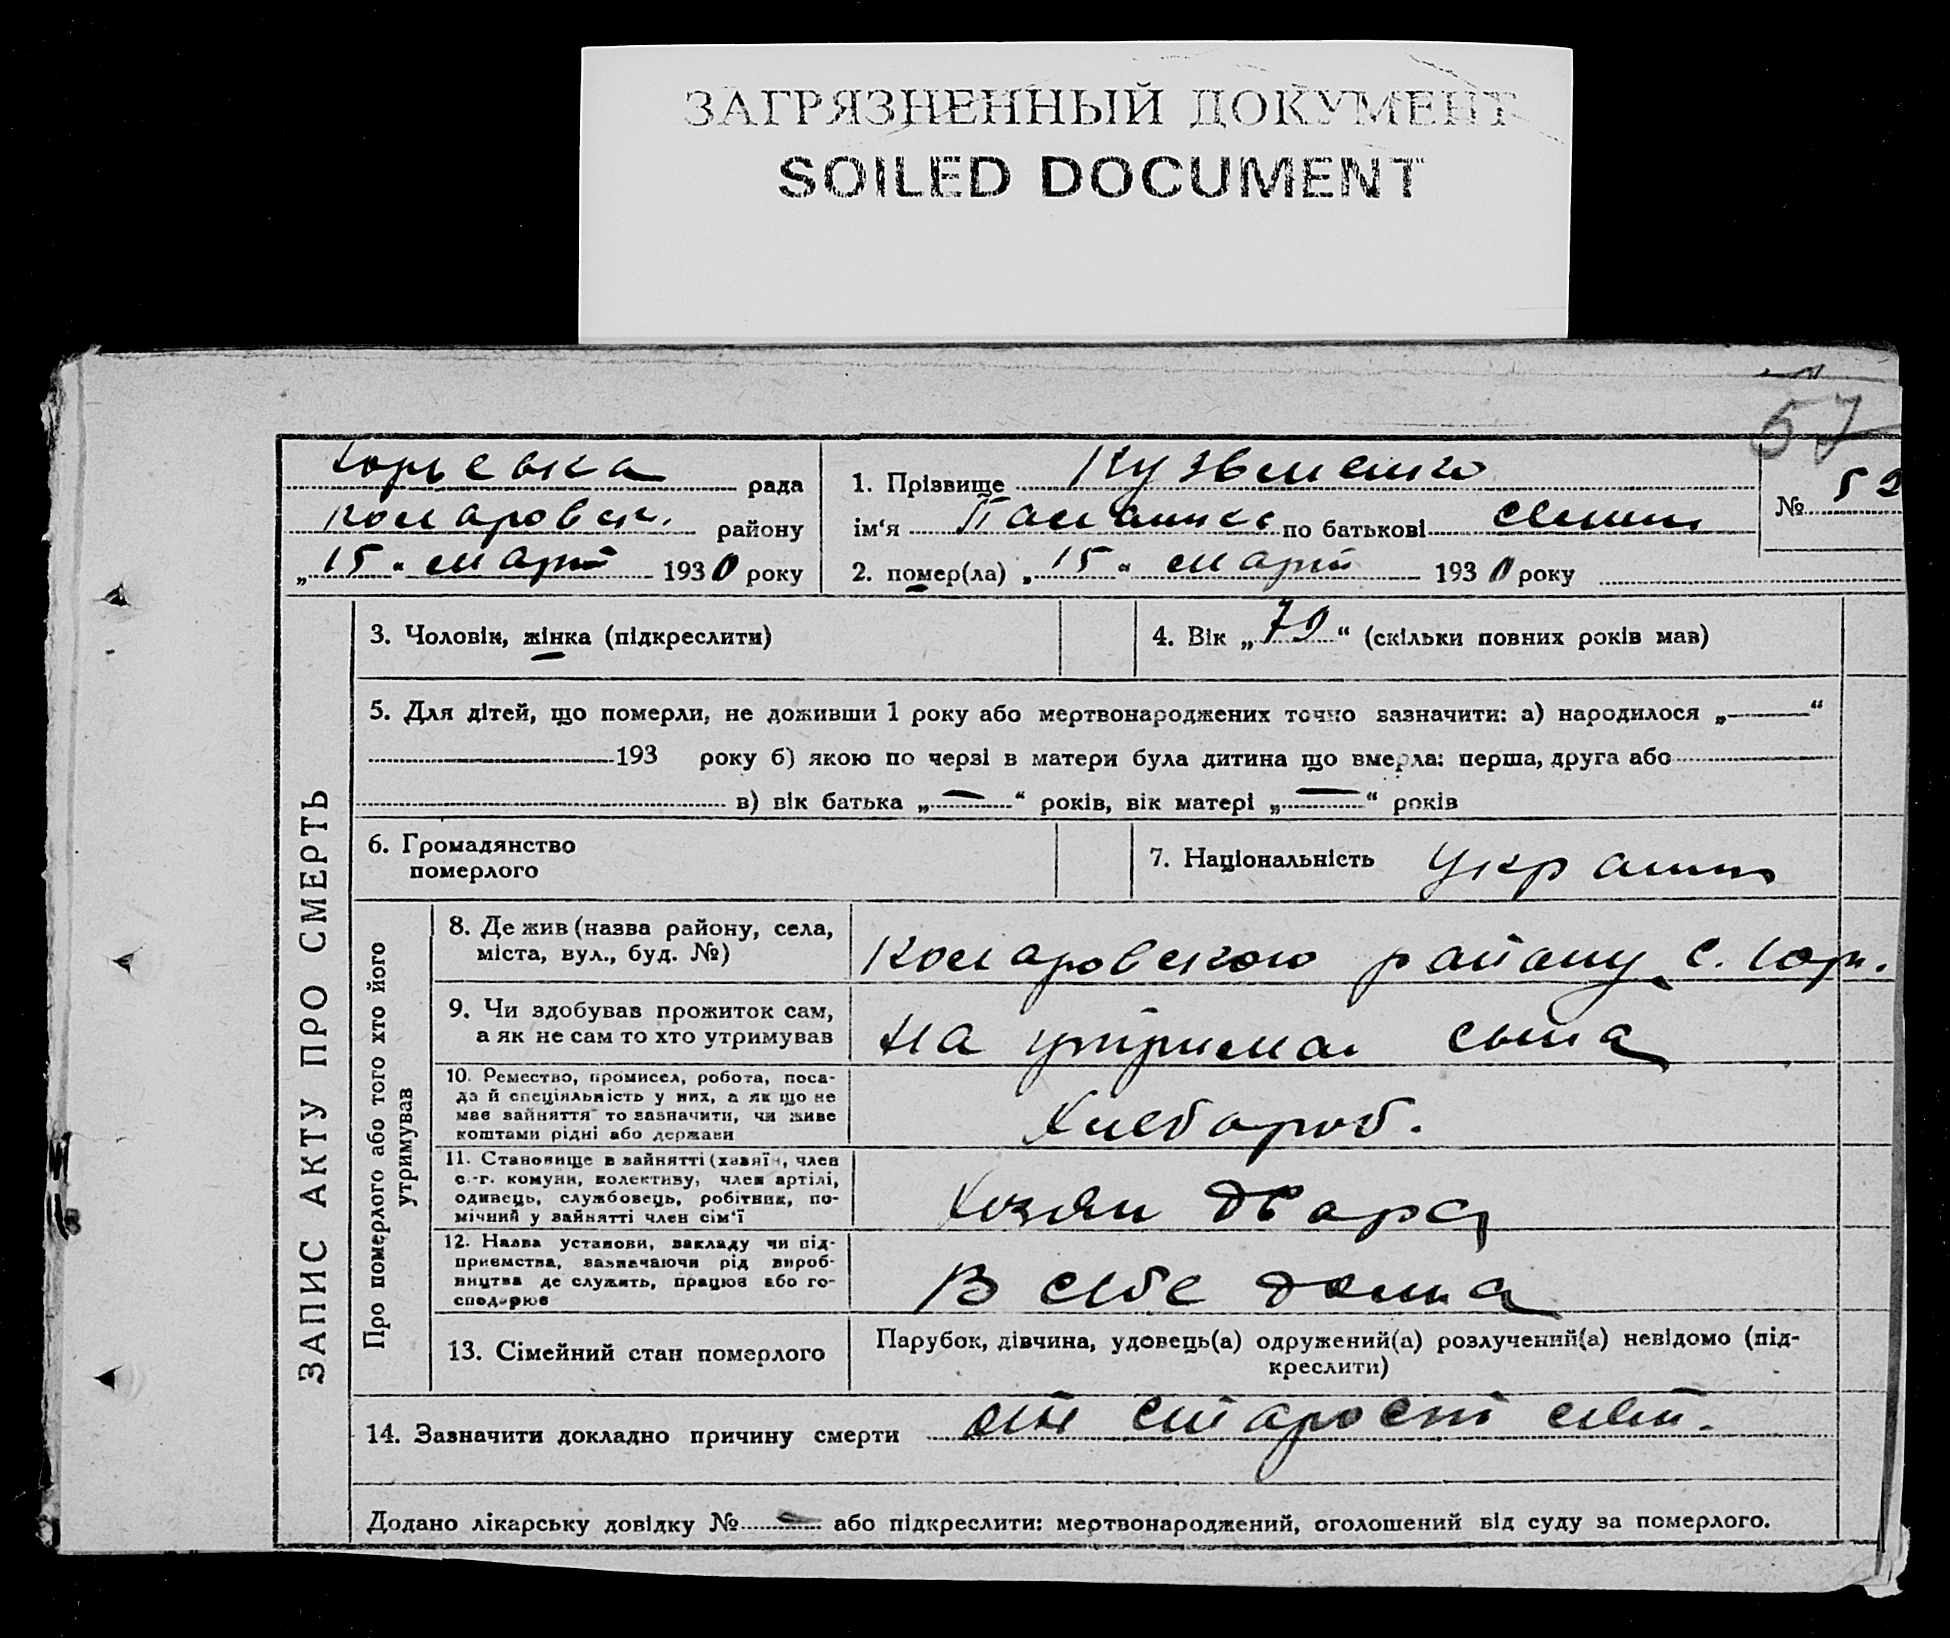 ЗАГРЯЗНЕННЫЙ ДОКУМЕНТ
SOILED DOCUMENT
57
ЗАПИС АКТУ ПРО СМЕРТЬ
Юрьевка рада
Комаровск. району
„15“ март 1930 року
1. Прізвище Кузьменко
ім‘я по батькові
№ 52
2. помер(ла) „15“ март 1930 року
3. Чоловік, жінка (підкреслити)
4. Вік „70“ (скільки повних років мав)
5. Для дітей, що померли, не доживши 1 року або мертвонароджених точно зазначити: а) народилося „—“
193 року б) якою по черзі в матери була дитина що вмерла: перша, друга або
в) вік батька „—“ років, вік матері „—“ років
6. Громадянство
померлого
7. Національність Украин
Про померлого або того хто його
утримував
8. Де жив (назва району, села,
міста, вул., буд. №)
Комаровского району с. Юрь.
9. Чи здобував прожиток сам,
а як не сам то хто утримував
На утрима сына
10. Ремество, промисел, робота, поса-
да й спеціяльність у них, а як що не
має зайняття то зазначити, чи живе
коштами рідні або держави
Хлебароб.
11. Становище в зайнятті (хазяїн, член
с.-г. комуни, колективу, член артілі,
одинець, службовець, робітник, по-
мічний у зайнятті член сім‘ї
Хозяин двара
12. Назва установи, закладу чи під-
приємства, зазначаючи рід вироб-
ництва де служить, працює або го-
сподарює
В себе дома
13. Сімейний стан померлого
Парубок, дівчина, удовець(а) одружений(а) розлучений(а) невідомо (під-
креслити)
14. Зазначити докладно причину смерти от старости
Додано лікарську довідку № — або підкреслити: мертвонароджений, оголошений від суду за померлого.